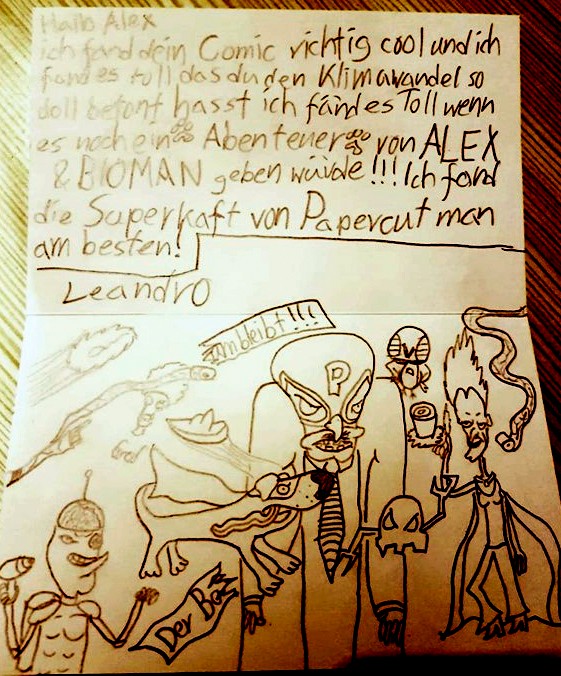 Hallo Alex
ich fand dein Comic richtig cool und ich
fand es toll das du den Klimawandel so
doll betont hasst ich fände s Toll wenn
es noch ein Abenteuer von ALEX
& BIOMAN geben würde!!! Ich fand
die Superkaft von Papercut man
am besten!
Leandro
bleibt!!!
P
Der